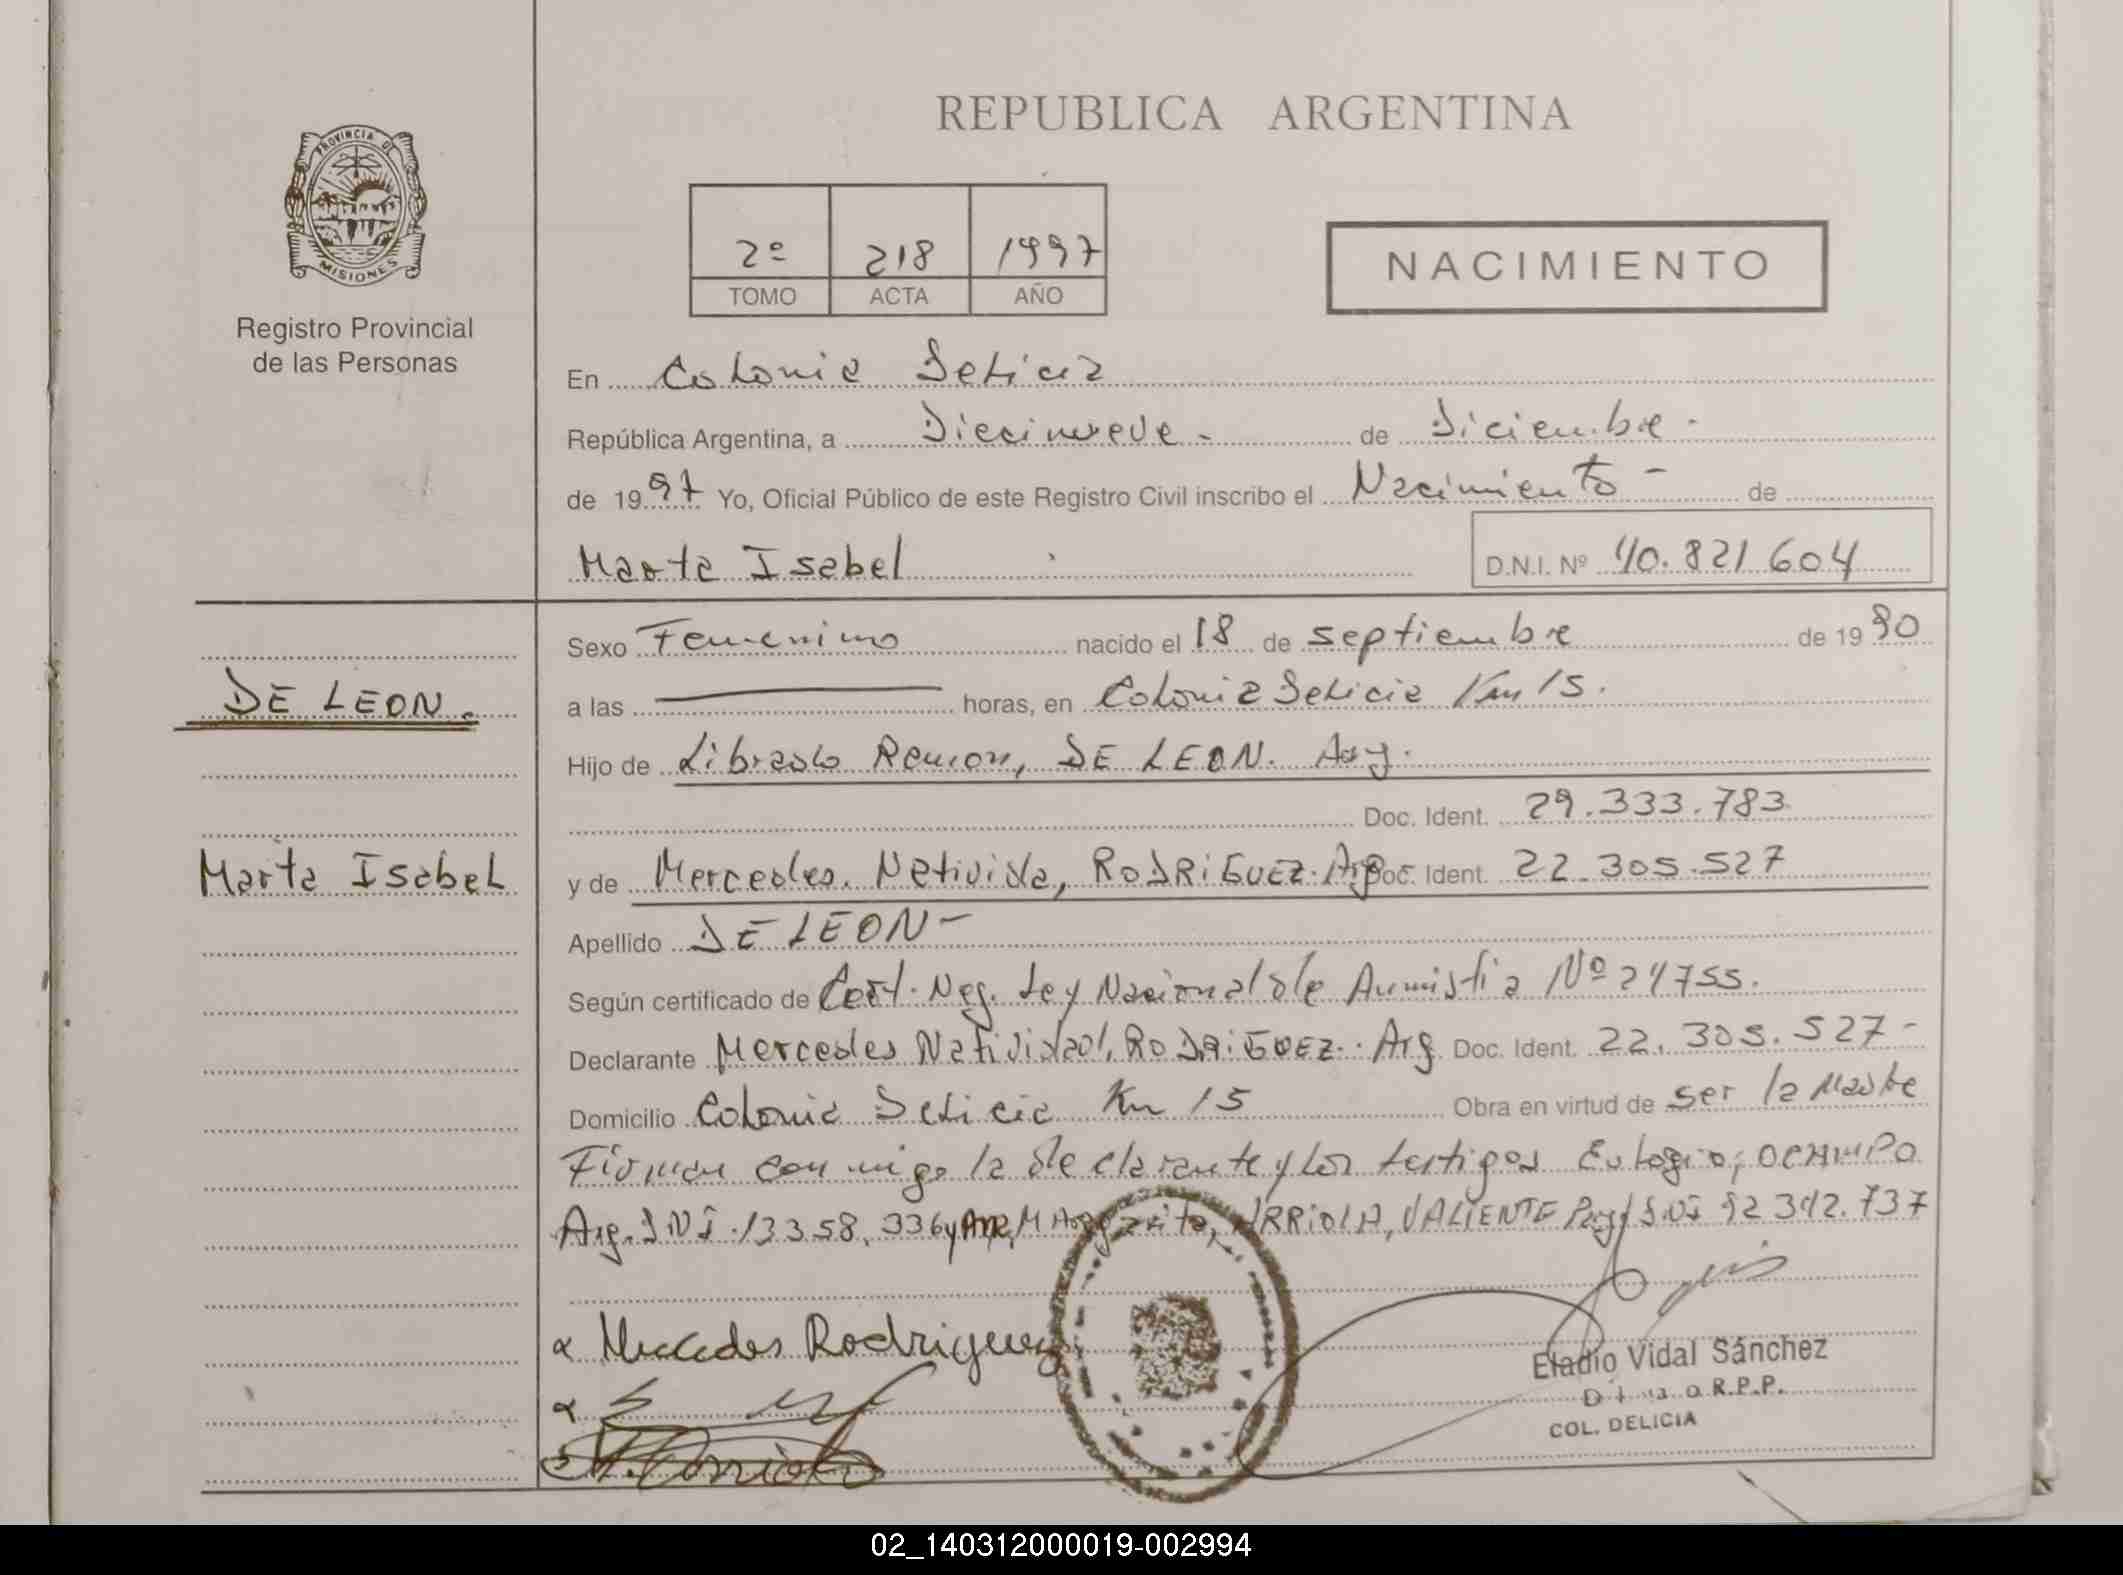 PROVINCIA DE
MISIONES
Registro Provincial
de las Personas
REPUBLICA ARGENTINA
2º 218 1997
TOMO ACTA AÑO
NACIMIENTO
En Colonia Delicia
República Argentina, a Diecinueve - de Diciembre -
de 1997 Yo, Oficial Público de este Registro Civil inscribo el Nacimiento - de
Marta Isabel
D.N.I. Nº 40.821.604
DE LEON.
Marta Isabel
Sexo Femenino nacido el 18 de septiembre de 1990
a las horas, en Colonia Delicia Km 15.
Hijo de Librado Ramon, DE LEON. Arg.
Doc. Ident. 29.333.783
y de Mercedes. Natividad, RODRIGUEZ. Arg Doc. Ident. 22.305.527
Apellido DE LEON -
Según certificado de Cert. Neg. Ley Nacional de Amnistia Nº 24755.
Declarante Mercedes Natividad, RODRIGUEZ. Arg. Doc. Ident. 22.305.527 -
Domicilio Colonia Delicia Km 15 Obra en virtud de ser la Madre
Firman conmigo la declarante y los testigos Eulogio, OCAMPO
Arg. DNI. 13358.336 y Ana, Margarita, ARRIOLA, VALIENTE Pary DNI 92342.737
x Mercedes Rodriguez
Eladio Vidal Sánchez
R.P.P.
COL. DELICIA
02_140312000019-002994